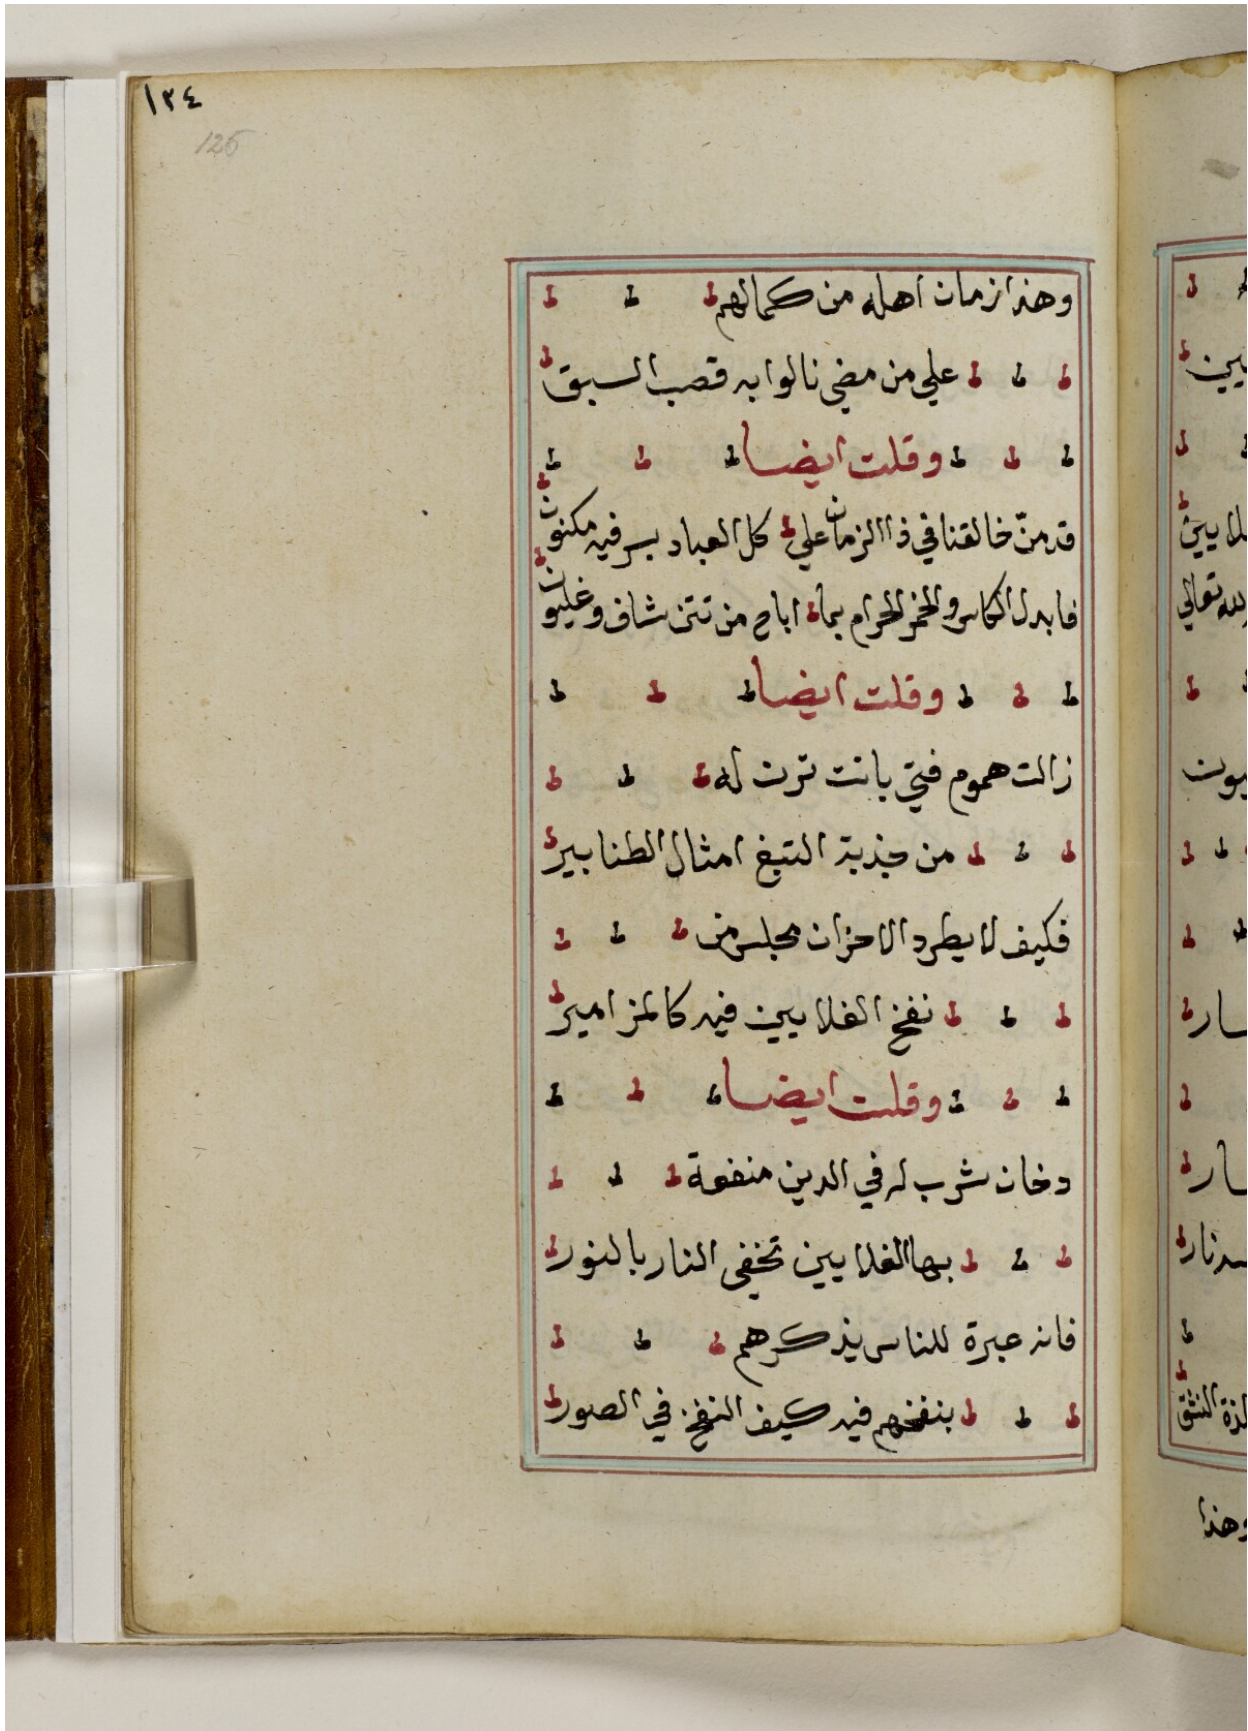 ١٢٤
125
وهذا زمان اهله من كمالهم
علي من مضي نالوا به قصب السبق
وقلت ايضا
قد منّ خالقنا في ذا الزمان علي كل العباد بسر فيه مكنون
فابدل الكاس والخمر الحرام بما اباح من تتن شاف وغليون
وقلت ايضا
زالت هموم فتي باتت ترن له
من جذبة التبغ امثال الطنابير
فكيف لا يطرد الاحزان مجلس من
نفخ الغلايين فيه كالمزامير
وقلت ايضا
دخان شرب له في الدين منفعة
بها الغلايين تخفي النار بالنور
فانه عبرة للناس يذكرهم
بنفخهم فيه كيف النفخ في الصور
لله تعالي
لذة النشق
وهذا